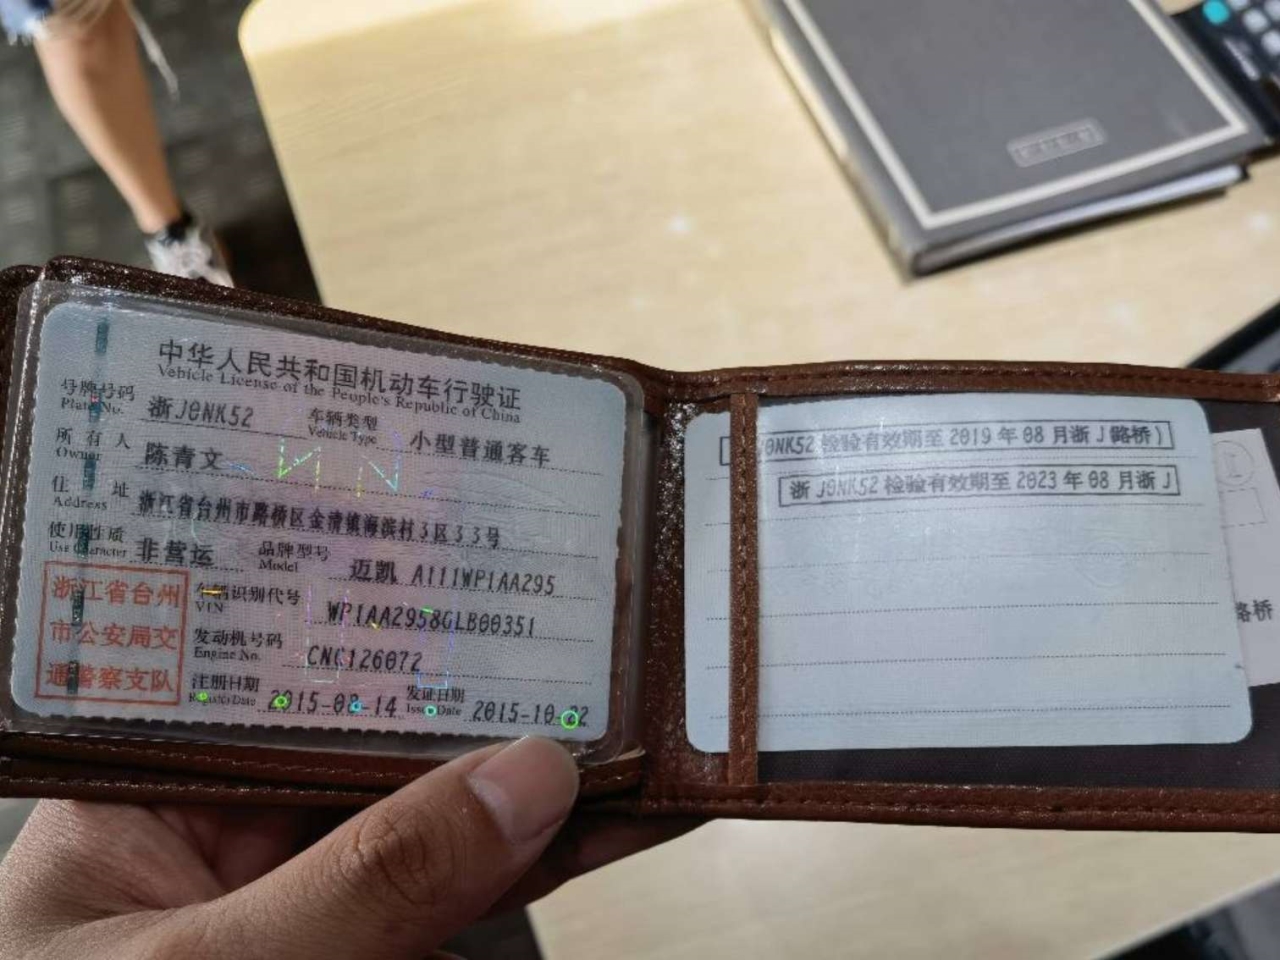 中华人民共和国机动车行驶证
Vehicle License of the People's Republic of China
号牌号码 浙J0NK52 车辆类型 小型普通客车
Plate No. Vehicle Type
所有人 陈青文
Owner
住址 浙江省台州市路桥区金清镇海滨村3区33号
Address
使用性质 非营运 品牌型号 迈凯 A111WP1AA295
Use Character Model
浙江省台州
市公安局交
通警察支队
车辆识别代号 WP1AA2958GLB00351
VIN
发动机号码 CNC126072
Engine No.
注册日期 2015-08-14 发证日期 2015-10-22
Register Date Issue Date
J0NK52 检验有效期至 2019 年 08 月浙 J(路桥)
浙 J0NK52 检验有效期至 2023 年 08 月浙 J
路桥